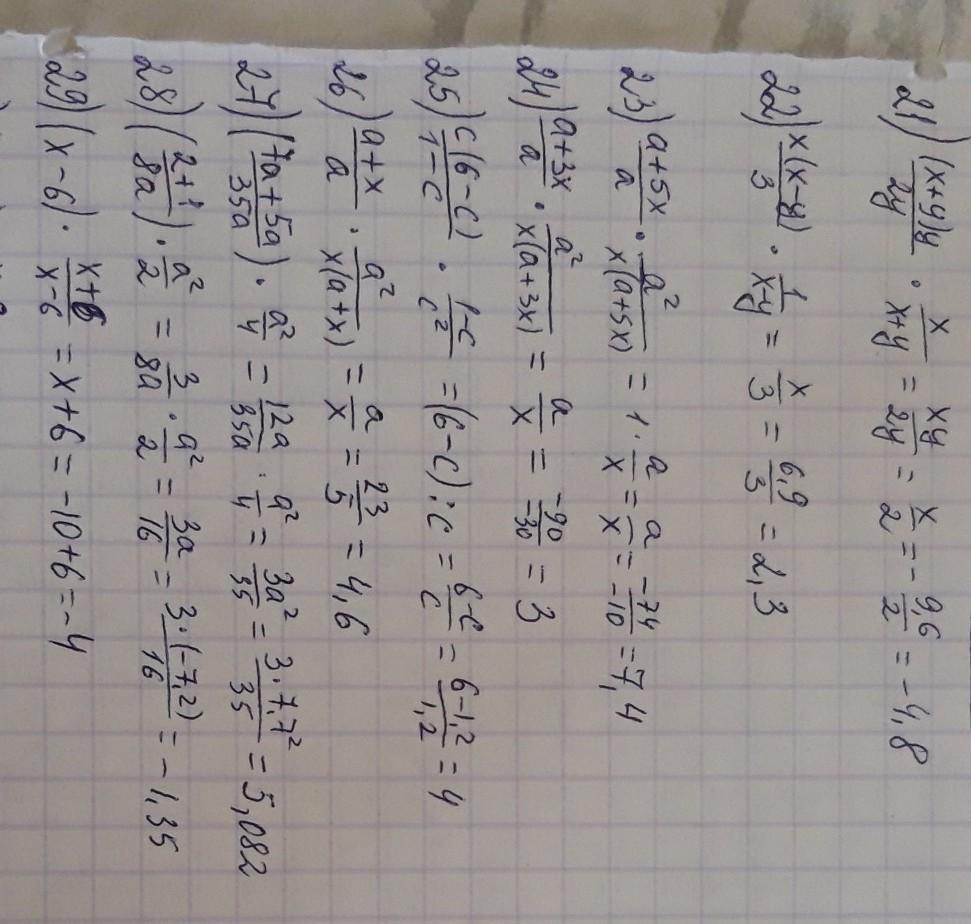 21) (x+y)y/2y · x/x+y = xy/2y = x/2 = -9,6/2 = -4,8
22) x(x-y)/3 · 1/xy = x/3 = 6,9/3 = 2,3
23) a+5x/a · a²/x(a+5x) = 1 · a/x = a/x = -74/-10 = 7,4
24) a+3x/a · a²/x(a+3x) = a/x = -90/-30 = 3
25) c(6-c)/1-c · 1-c/c² = (6-c):c = 6-c/c = 6-1,2/1,2 = 4
26) a+x/a · a²/x(a+x) = a/x = 23/5 = 4,6
27) (7a+5a/35a) · a²/4 = 12a/35a · a²/4 = 3a²/35 = 3·7,7²/35 = 5,082
28) (2+1/8a) · a²/2 = 3/8a · a²/2 = 3a/16 = 3·(-7,2)/16 = -1,35
29) (x-6) · x+6/x-6 = x+6 = -10+6 = -4